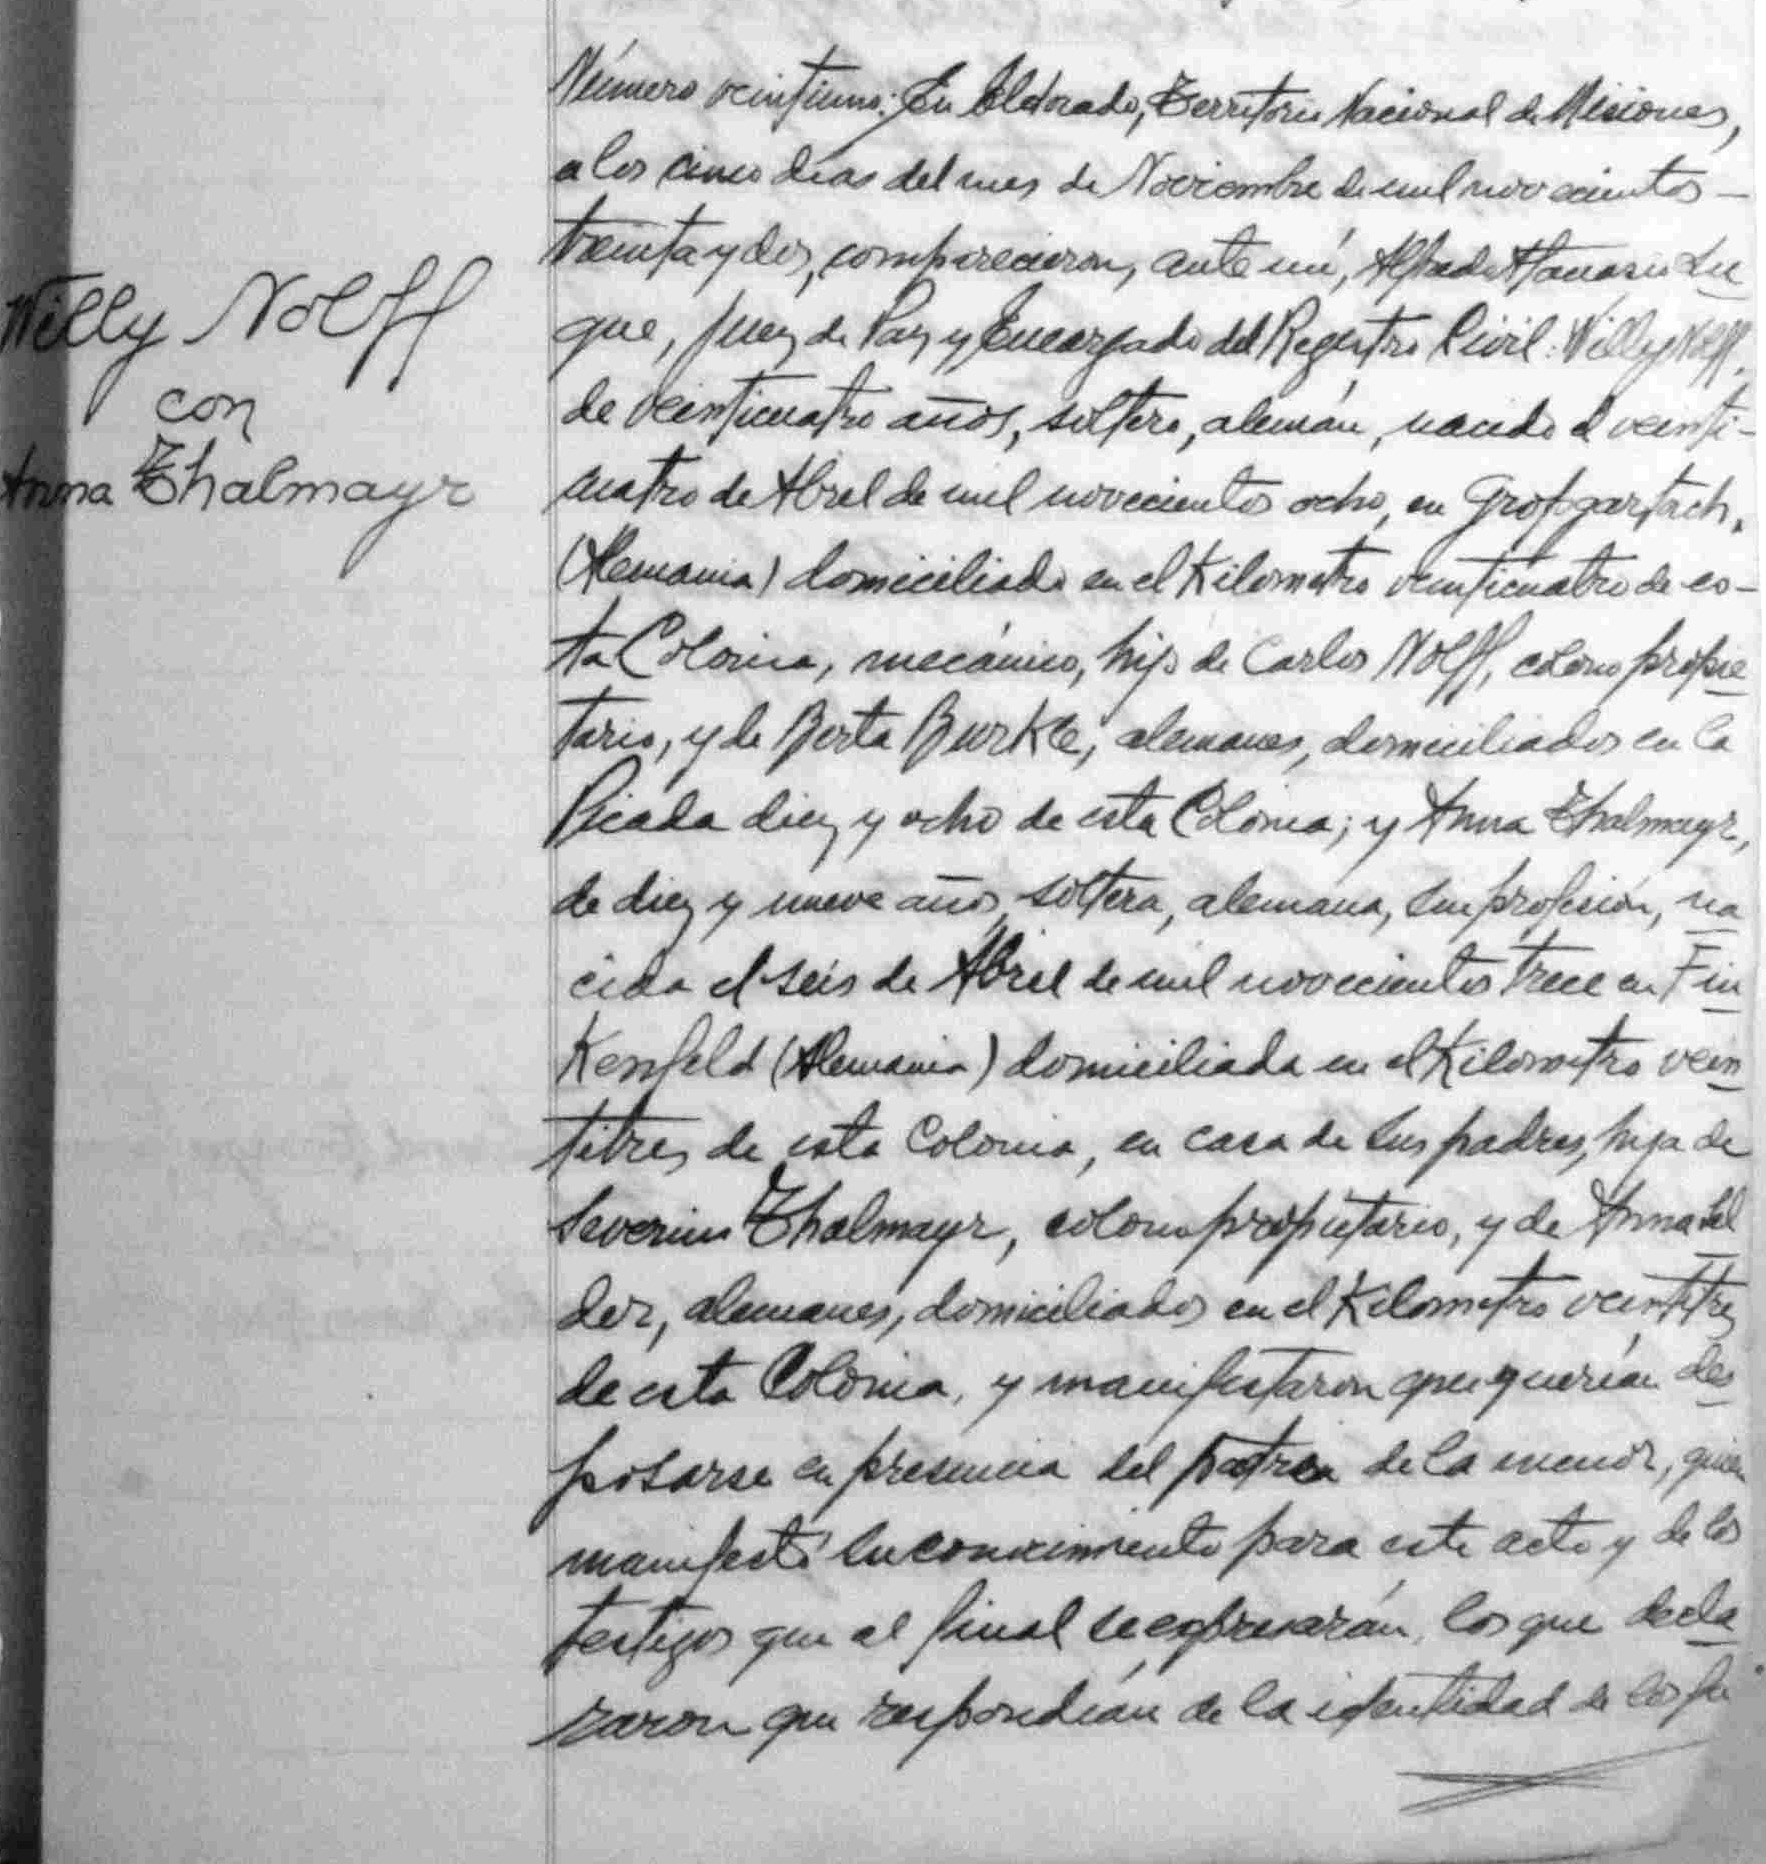 Willy Nolff
con
Anna Thalmayr
Número veintiuno: En Eldorado, Territorio Nacional de Misiones,
a los cinco dias del mes de Noviembre de mil novecientos –
treinta y dos, comparecieron, ante mí, Atanasio Lu
que, Juez de Paz y Encargado del Registro Civil: Willy Nolff,
de veinticuatro años, soltero, alemán, nacido el veinti-
cuatro de Abril de mil novecientos ocho, en Grofsgartach,
(Alemania) domiciliado en el Kilometro veinticuatro de es-
ta Colonia, mecánico, hijo de Carlos Nolff, colono propie
tario, y de Berta Burkle, alemanes, domiciliados en la
Picada diez y ocho de esta Colonia; y Anna Thalmayr,
de diez y nueve años, soltera, alemana, sin profesión, na
cida el seis de Abril de mil novecientos trece en Fin
Kenfeld (Alemania) domiciliada en el Kilometro vein
titres de esta Colonia, en casa de sus padres, hija de
Severino Thalmayr, colono propietario, y de Anna Sel
der, alemanes, domiciliados en el Kilometro veintitres
de esta Colonia, y manifestaron que querían des
posarse en presencia del padre de la menor, quien
manifestó su concimiento para este acto y de los
testigos que al final se expresarán, los que decla
raron que respondían de la identidad de los fu